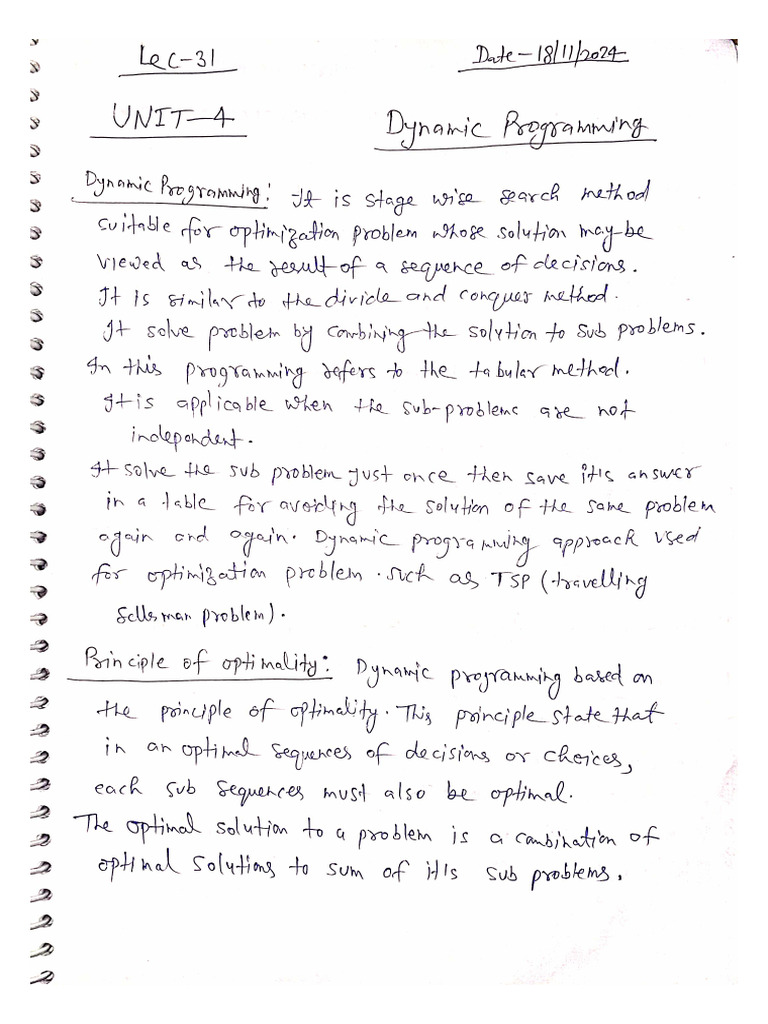 Lec-31
Date-18/11/2024
UNIT-4
Dynamic Programming
Dynamic Programming: It is stage wise search method
suitable for optimization problem whose solution may be
viewed as the result of a sequence of decisions.
It is similar to the divide and conquer method.
It solve problem by combining the solution to sub problems.
In this programming refers to the tabular method.
It is applicable when the sub-problems are not
independent.
It solve the sub problem just once then save it's answer
in a table for avoiding the solution of the same problem
again and again. Dynamic programming approach used
for optimization problem. such as TSP (travelling
Sellesman problem).
Principle of optimality: Dynamic programming based on
the principle of optimality. This principle state that
in an optimal sequences of decisions or choices,
each sub sequences must also be optimal.
The optimal solution to a problem is a combination of
optimal solutions to sum of it's sub problems.